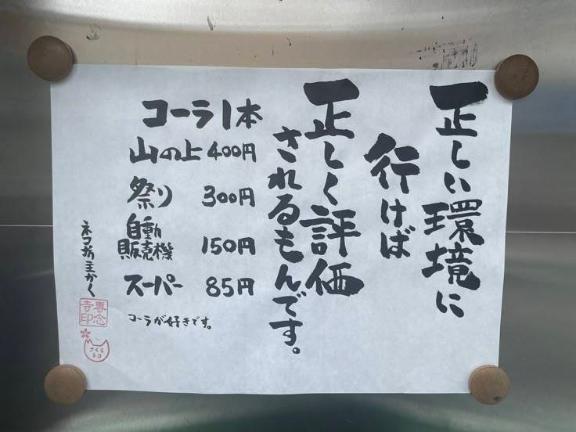 正しい環境に
行けば
正しく評価
されるもんです。
コーラ1本
山の上 400円
祭り 300円
自動
販売機 150円
スーパー 85円
コーラが好きです。
ネコ坊主かく
専念
寺印
さくら
ネコ